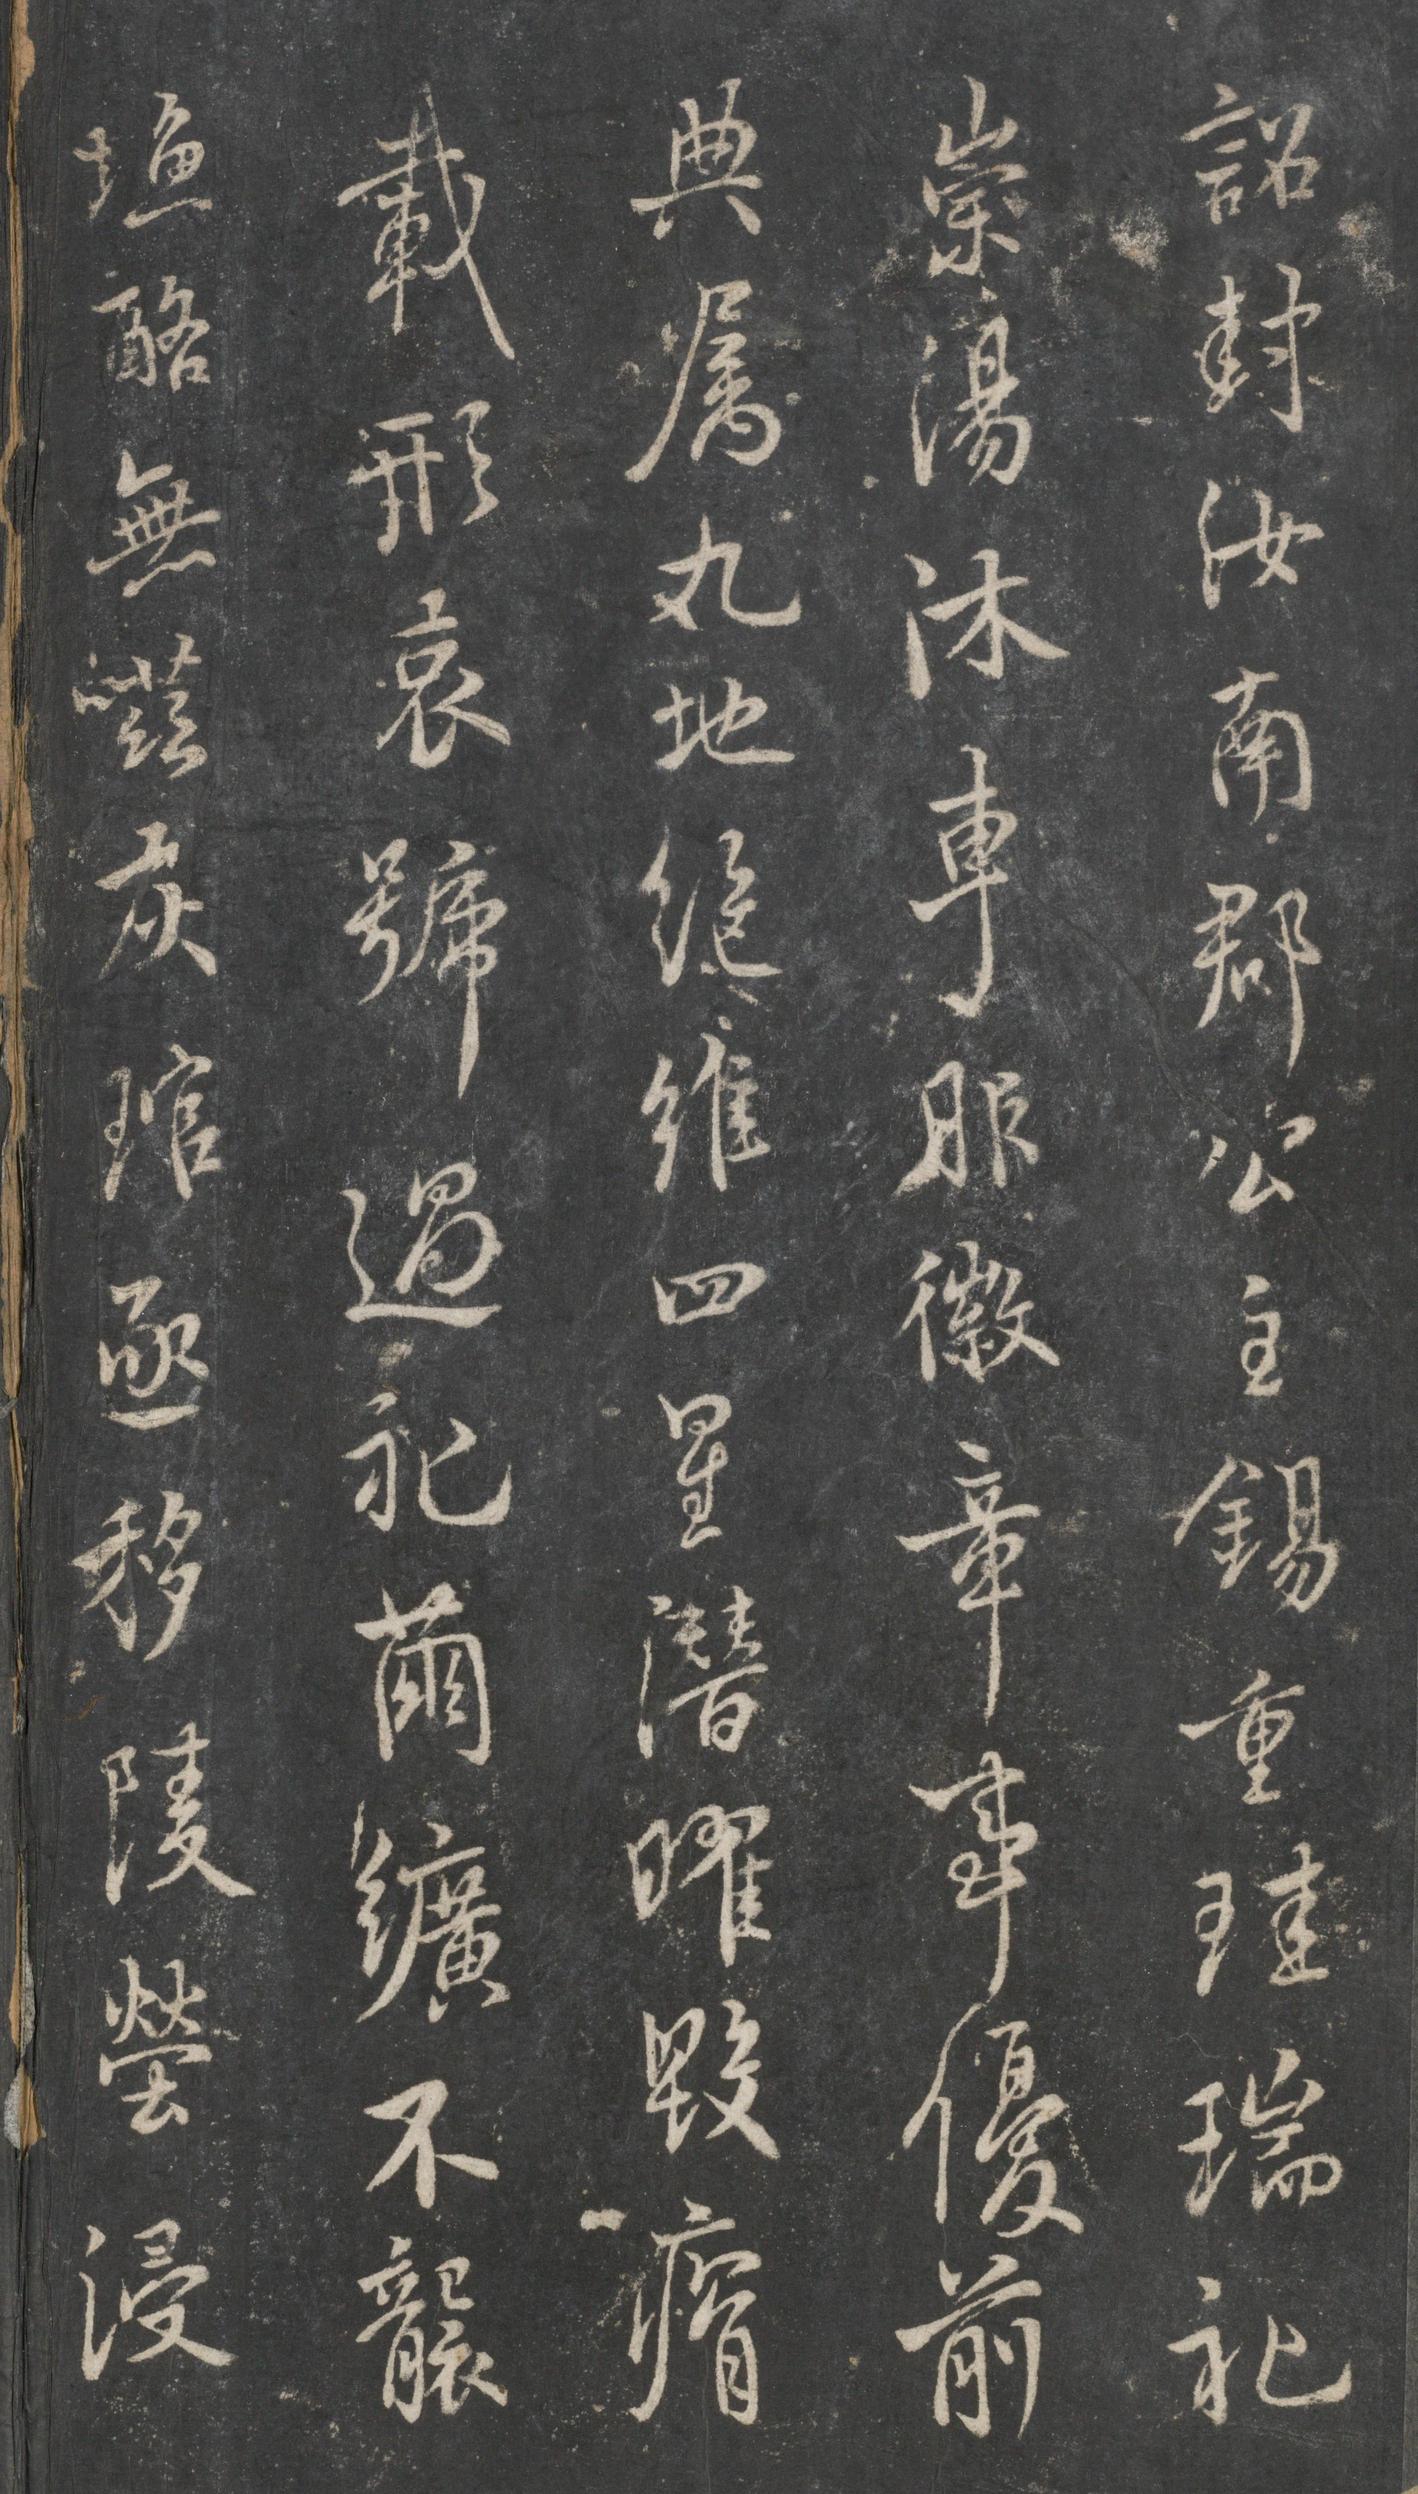 詔封汝南郡公主錫重珪瑞禮
崇湯沐車服徽章事優前
典屬九地絕維四星潛曜毀瘠
載形哀號過禮繭纊不襲
塩酪無嗞灰琯亟移陵塋浸